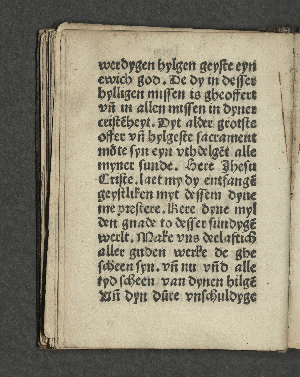 werdygen hylgen geyste eyn
ewich god. De dy in desser
hylligen missen is gheoffert
vn̄ in allen missen in dyner
cristēheyt. Dyt alder grotste
offer vn̄ hylgeste sacrament
mōte syn eyn vthdelgēt alle
myner sunde. Here Jhesu
Criste. laet my dy entfangē
geystliken myt dessem dyne
me prestere. Kere dyne myl
den gnade to desser sundygē
werlt. Make vns deelaftich
aller guden werke de ghe
scheen syn. vn̄ nu vn̄d alle
tyd scheen van dynen hilgē
Vn̄ dyn dūre vnschuldyge